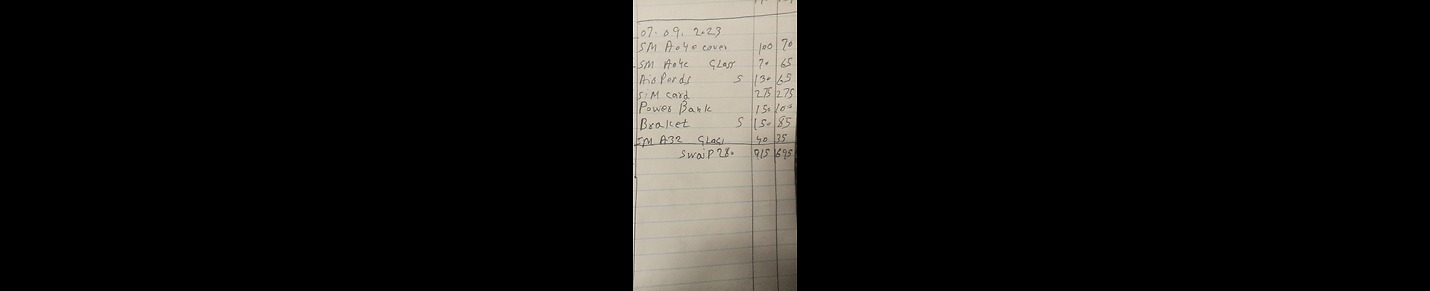 07.09.2023
SM A04e cover 100 70
SM A04e GLass 70 65
AirPords S 130 65
SiM card 275 275
Power Bank 150 100
Braket S 150 85
SM A32 GLass 40 35
SwaiP 280 915 695